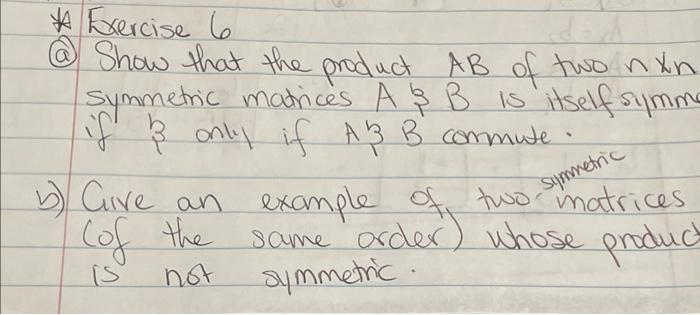 * Exercise 6
(a) Show that the product AB of two n×n
symmetric matrices A & B is itself symm
if & only if A & B commute.
symmetric
b) Give an example of two matrices
(of the same order) whose produc
is not symmetric.